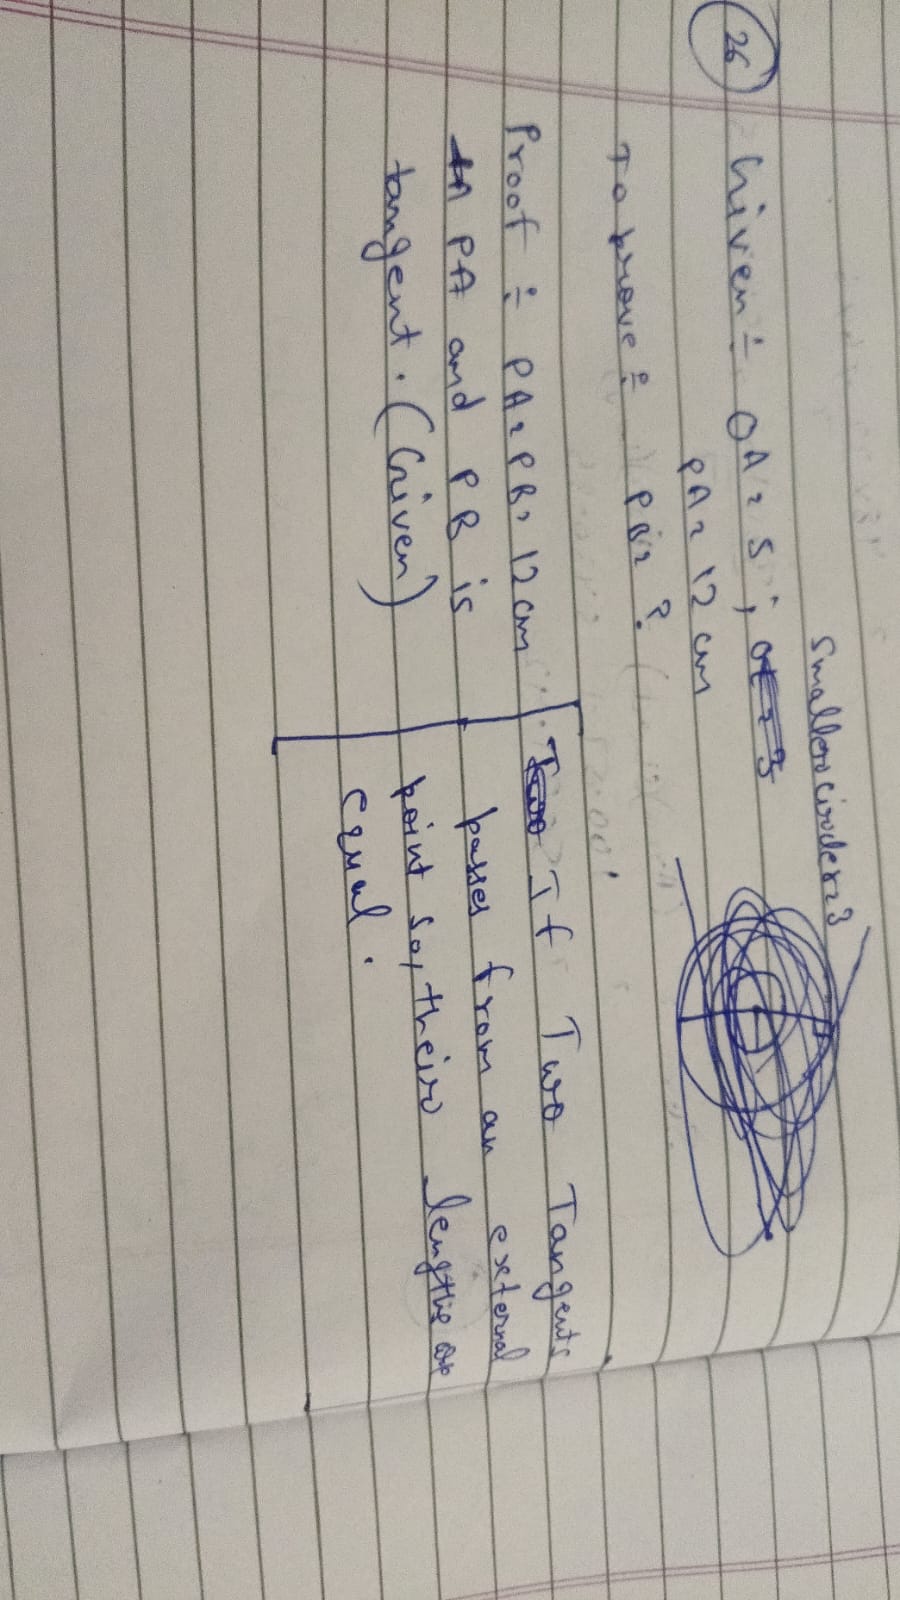 26
Given÷ OA = 5, 
Smaller circle r=3
PA = 12 cm
To prove÷ PB= ?
Proof÷ PA = PB = 12 cm
PA and PB is
tangent. (Given)
If Two Tangents
passes from an external
point so, their lengths are
equal.